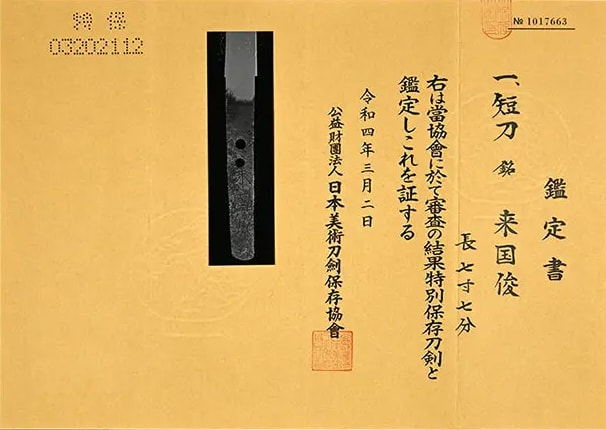 № 1017663
鑑定書
一、短刀 銘 来国俊
長 七寸七分
右は當協會に於て審査の結果特別保存刀剣と
鑑定しこれを証する
令和四年三月二日
公益財團法人 日本美術刀劍保存協會
特保
03202112